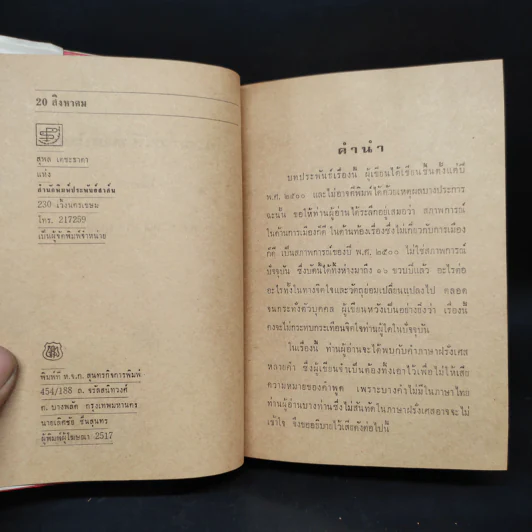 20 สิงหาคม
สุพล เตชะธาดา
แห่ง
สำนักพิมพ์ประพันธ์สาส์น
230 เวิ้งนครเขษม
โทร. 217259
เป็นผู้จัดพิมพ์จำหน่าย
พิมพ์ที่ ห.จ.ก. สุนทรกิจการพิมพ์
454/188 ถ. จรัลสนิทวงศ์
ต. บางพลัด กรุงเทพมหานคร
นายเลิศชัย ชื่นสุนทร
ผู้พิมพ์ผู้โฆษณา 2517
คำนำ
บทประพันธ์เรื่องนี้ ผู้เขียนได้เขียนขึ้นตั้งแต่ปี
พ.ศ. ๒๕๐๐ และไม่อาจพิมพ์ได้ด้วยเหตุผลบางประการ
ฉะนั้น ขอให้ท่านผู้อ่านได้ระลึกอยู่เสมอว่า สภาพการณ์
ในด้านการเมืองก็ดี ในด้านท้องเรื่องซึ่งไม่เกี่ยวกับการเมือง
ก็ดี เป็นสภาพการณ์ของปี พ.ศ. ๒๕๐๐ ไม่ใช่สภาพการณ์
ปัจจุบัน ซึ่งบัดนี้ได้ทิ้งห่างมาถึง ๑๖ ขวบปีแล้ว อะไรต่อ
อะไรทั้งในทางจิตใจและวัตถุย่อมเปลี่ยนแปลงไป ตลอด
จนกระทั่งตัวบุคคล ผู้เขียนหวังเป็นอย่างยิ่งว่า เรื่องนี้
คงจะไม่กระทบกระเทือนจิตใจท่านผู้ใดในปัจจุบัน
ในเรื่องนี้ ท่านผู้อ่านจะได้พบกับคำภาษาฝรั่งเศส
หลายคำ ซึ่งผู้เขียนจำเป็นต้องทิ้งเอาไว้เพื่อไม่ให้เสีย
ความหมายของคำพูด เพราะบางคำไม่มีในภาษาไทย
ท่านผู้อ่านบางท่านซึ่งไม่สันทัดในภาษาฝรั่งเศสอาจจะไม่
เข้าใจ จึงขออธิบายไว้เสียดังต่อไปนี้